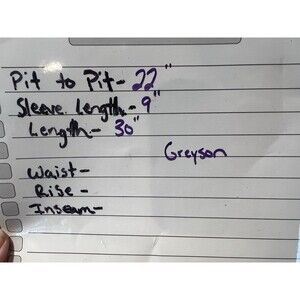 Pit to Pit- 22"
Sleeve Length- 9"
Length- 30"
Greyson
Waist-
Rise-
Inseam-